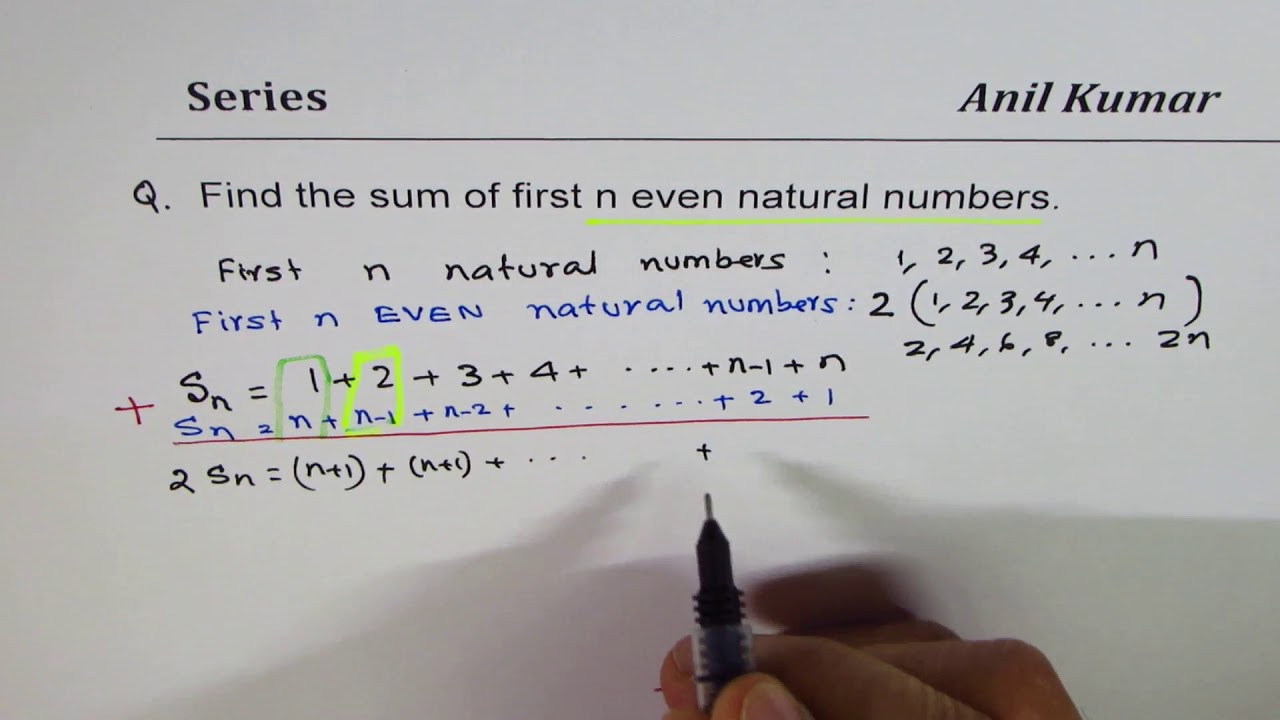 Series Anil Kumar
Q. Find the sum of first n even natural numbers.
First n natural numbers : 1, 2, 3, 4, ... n
First n EVEN natural numbers: 2 (1, 2, 3, 4, ... n)
2, 4, 6, 8, ... 2n
Sn = 1 + 2 + 3 + 4 + ..... + n-1 + n
+ Sn = n + n-1 + n-2 + ....... + 2 + 1
2 Sn = (n+1) + (n+1) + ... +